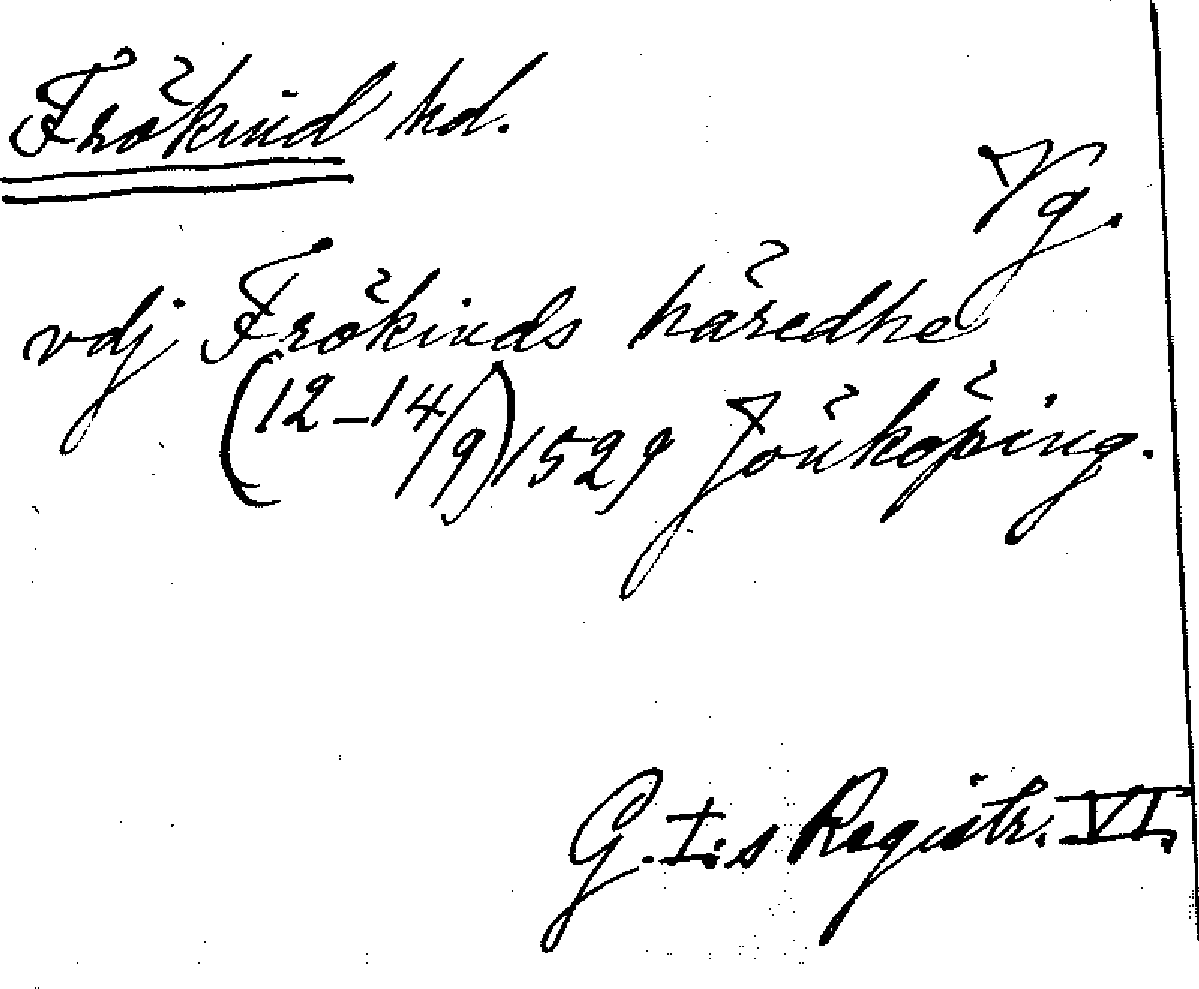 Frökind hd.
Vg.
vdj Frökinds häredhe
(12-14/9) 1529 Jönköping.
G. I:s Registr. VI.